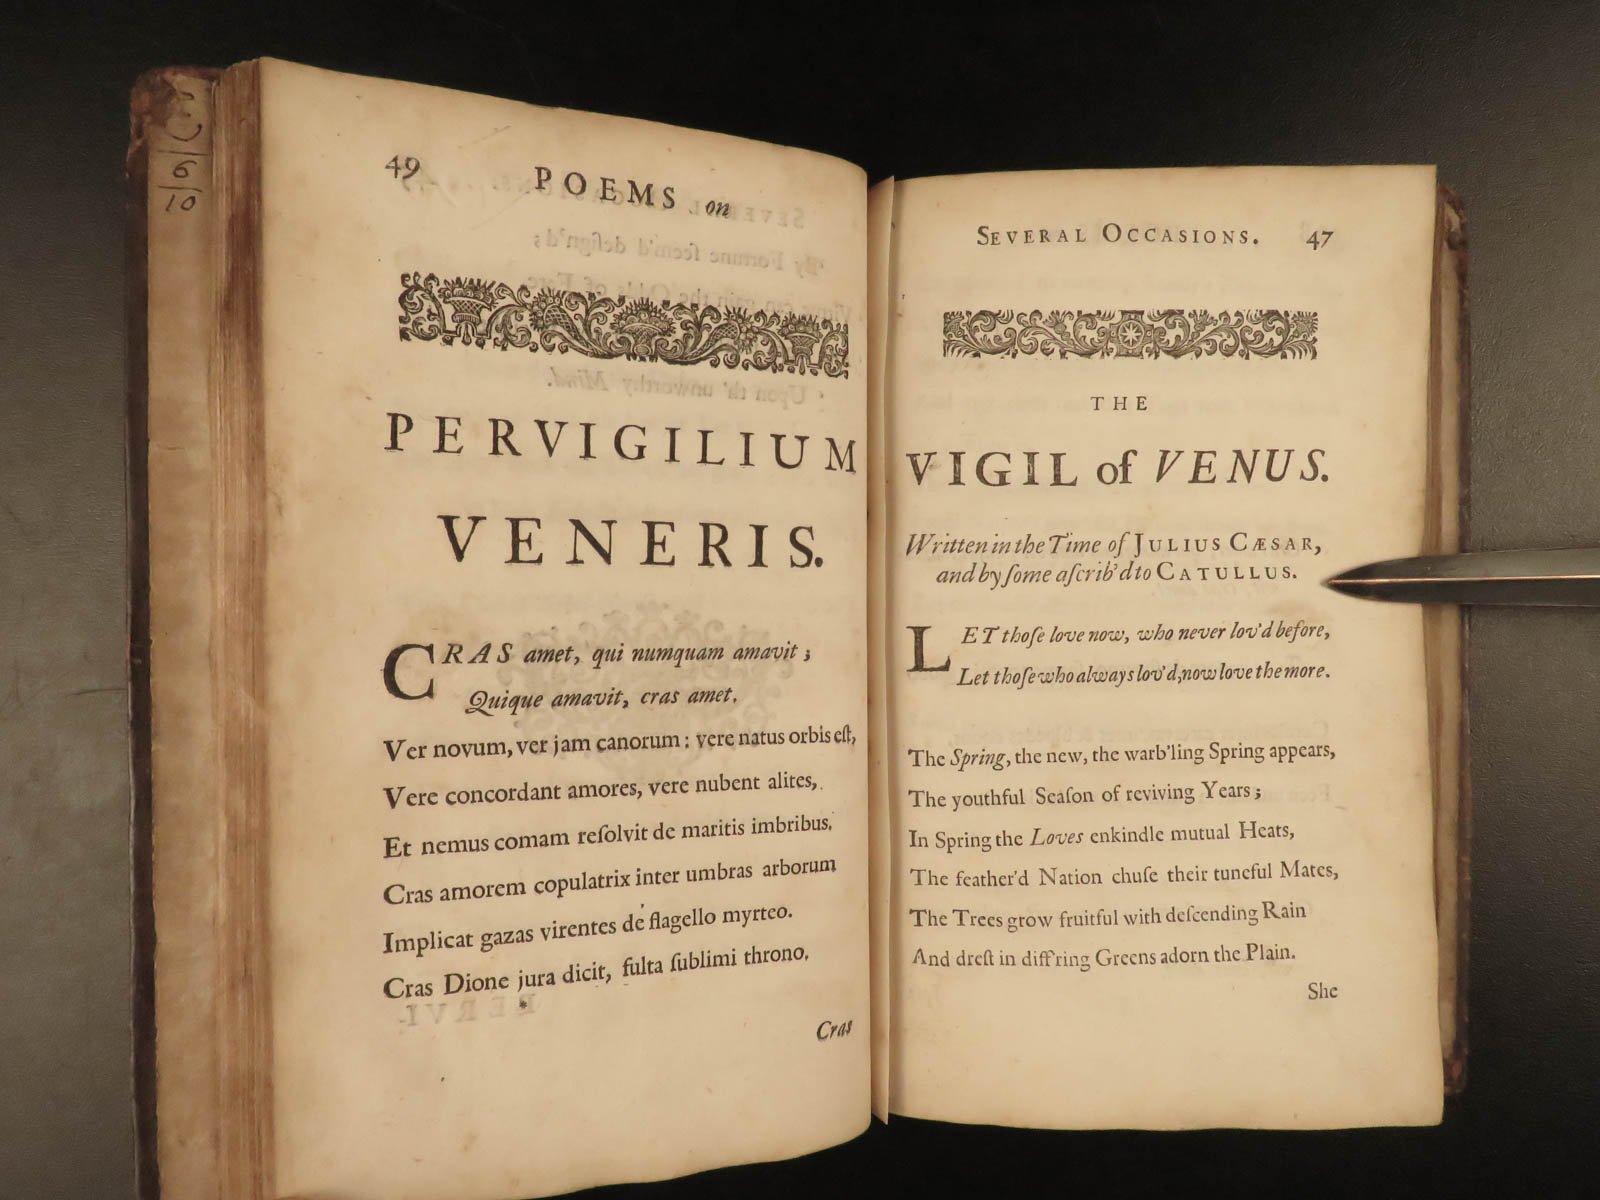 6
10
49
POEMS on
PERVIGILIUM
VENERIS.
CRAS amet, qui numquam amavit;
Quique amavit, cras amet.
Ver novum, ver jam canorum: vere natus orbis est,
Vere concordant amores, vere nubent alites,
Et nemus comam reſolvit de maritis imbribus.
Cras amorem copulatrix inter umbras arborum
Implicat gazas virentes de flagello myrteo.
Cras Dione jura dicit, fulta ſublimi throno.
Cras
SEVERAL OCCASIONS. 47
THE
VIGIL of VENUS.
Written in the Time of JULIUS CÆSAR,
and by ſome aſcrib'd to CATULLUS.
LET thoſe love now, who never lov'd before,
Let thoſe who always lov'd, now love the more.
The Spring, the new, the warb'ling Spring appears,
The youthful Seaſon of reviving Years;
In Spring the Loves enkindle mutual Heats,
The feather'd Nation chuſe their tuneful Mates,
The Trees grow fruitful with deſcending Rain
And dreſt in diff'ring Greens adorn the Plain.
She